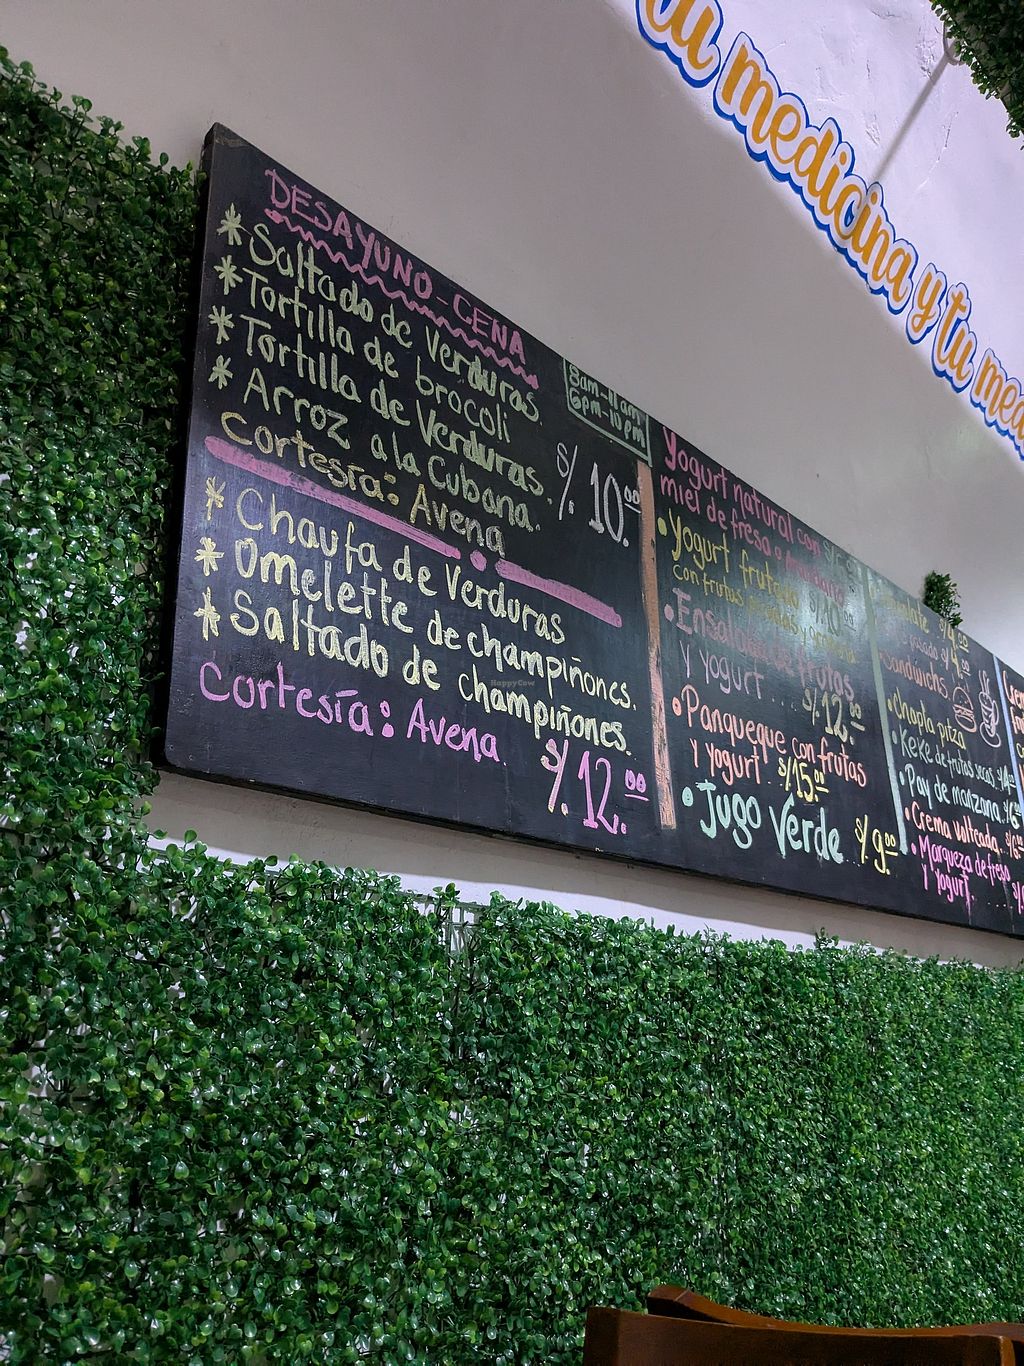 tu medicina y tu
DESAYUNO-CENA
8am-11am
6pm-10pm
* Saltado de verduras.
* Tortilla de brocoli
* Tortilla de Verduras.
* Arroz a la Cubana.
S/. 10.00
Cortesía: Avena
* Chaufa de verduras
* Omelette de champiñones.
* Saltado de champiñones.
Cortesía: Avena. S/. 12.00
Yogurt natural con
miel de fresa o
• Yogurt frutado S/10.00
con frutas
• Ensalada de frutas
y yogurt.... S/. 12.00
• Panqueque con frutas
y yogurt S/15.00
• Jugo Verde S/9.00
S/4.00
Sandwichs
• Chapla pitza
• Keke de frutas secas.
• Pay de manzana.
• Crema volteada.
• Marqueza de fresa
y yogurt
HappyCow